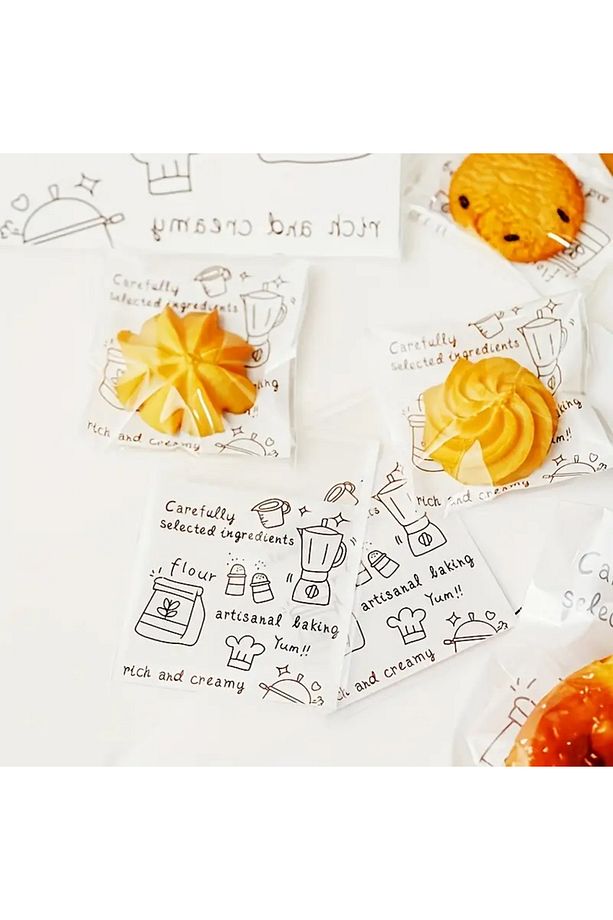 rich and creamy
Carefully
selected ingredients
king
rich and creamy
Carefully
selected ingredients
baking
um!!
rich and creamy
Carefully
selected ingredients
flour
artisanal baking
Yum!!
rich and creamy
ts
artisanal baking
Yum!!
rich and creamy
Ca
selec